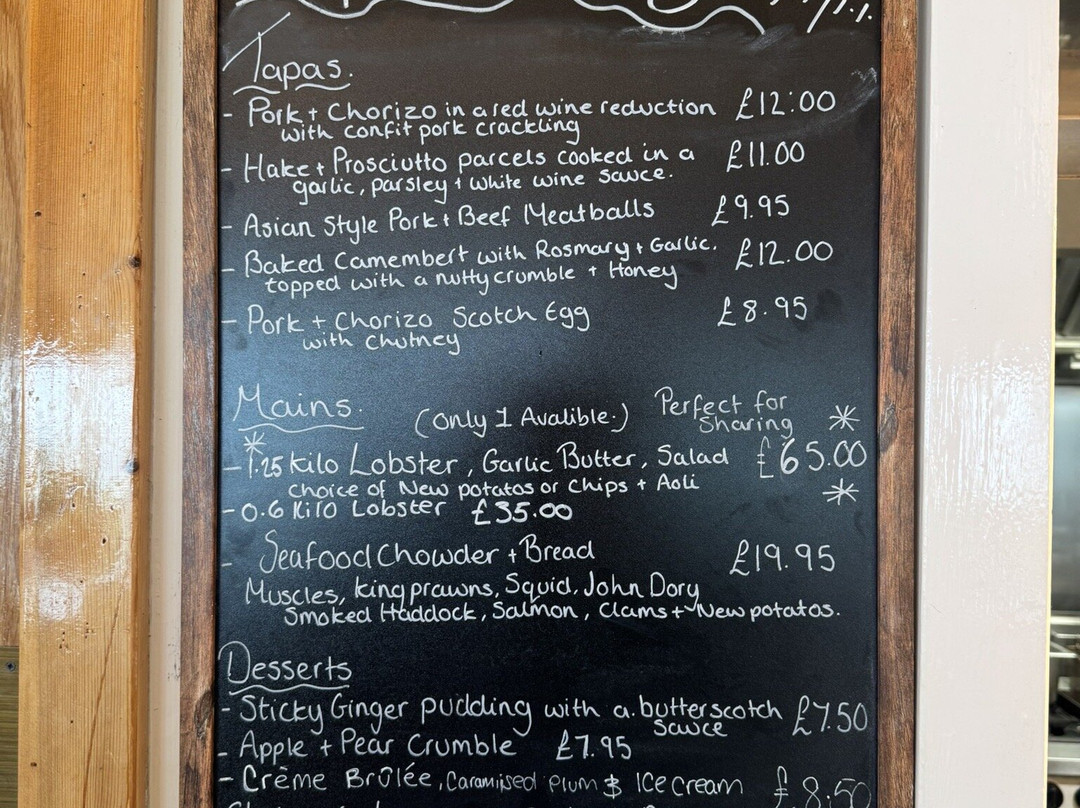 Tapas.
- Pork + Chorizo in a red wine reduction £12:00
with confit pork crackling
- Hake + Prosciutto parcels cooked in a £11.00
garlic, parsley + white wine sauce.
- Asian Style Pork + Beef Meatballs £9.95
- Baked Camembert with Rosmary + Garlic. £12.00
topped with a nutty crumble + Honey
- Pork + Chorizo Scotch Egg £8.95
with Chutney
Mains. (Only 1 Avalible.) Perfect for
Sharing *
* - 1.25 Kilo Lobster, Garlic Butter, Salad £65.00
choice of New potatos or Chips + Aoli *
- 0.6 Kilo Lobster £35.00
- Seafood Chowder + Bread £19.95
Muscles, king prawns, Squid, John Dory
Smoked Haddock, Salmon, Clams + New potatos.
Desserts
- Sticky Ginger pudding with a butterscotch £7.50
Sauce
- Apple + Pear Crumble £7.95
- Crème Brûlée, Caramised Plum & Ice cream £8.50